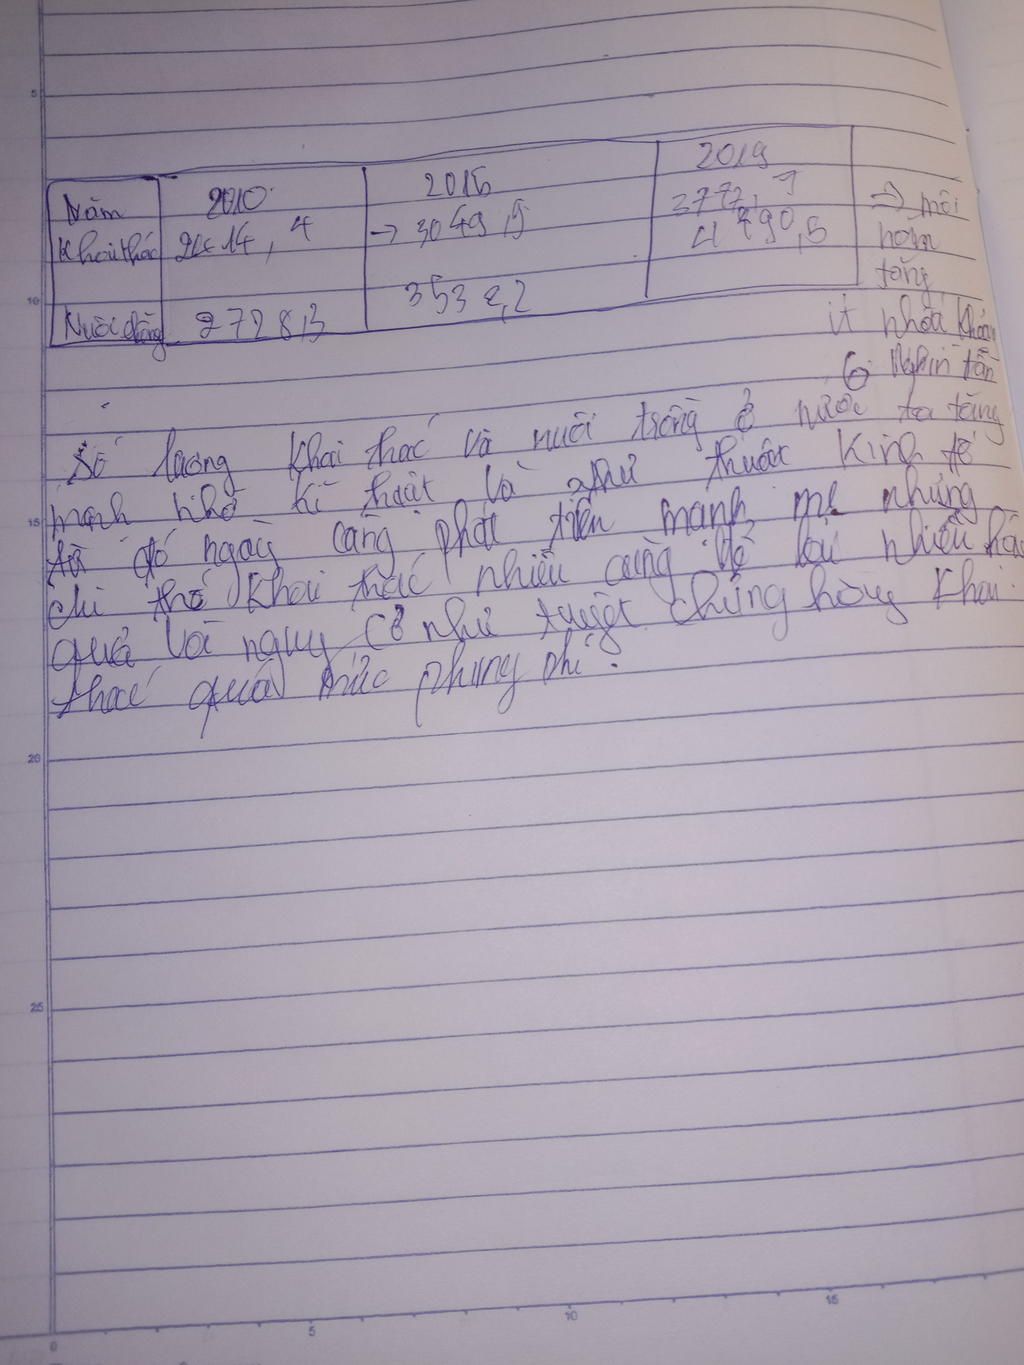 5
Năm 2010 2015 2019
Khai thác 2414,4 → 3049,9 3777,7 ⇒ mỗi
4890,5 năm
tăng
10
Nuôi trồng 2728,3 3532,2
ít nhất khoảng
6 Nghìn tấn
Số lượng khai thác và nuôi trồng ở nước ta tăng
15
mạnh nhờ kĩ thuật và như thuật kinh tế
từ đó ngày càng phát triển mạnh mẽ nhưng
chỉ thế khai thác nhiều cũng để lại nhiều hậu
quả với nguy cơ như tuyệt chủng hàng khai
thác quá mức phung phí.
20
25
0 5 10 15